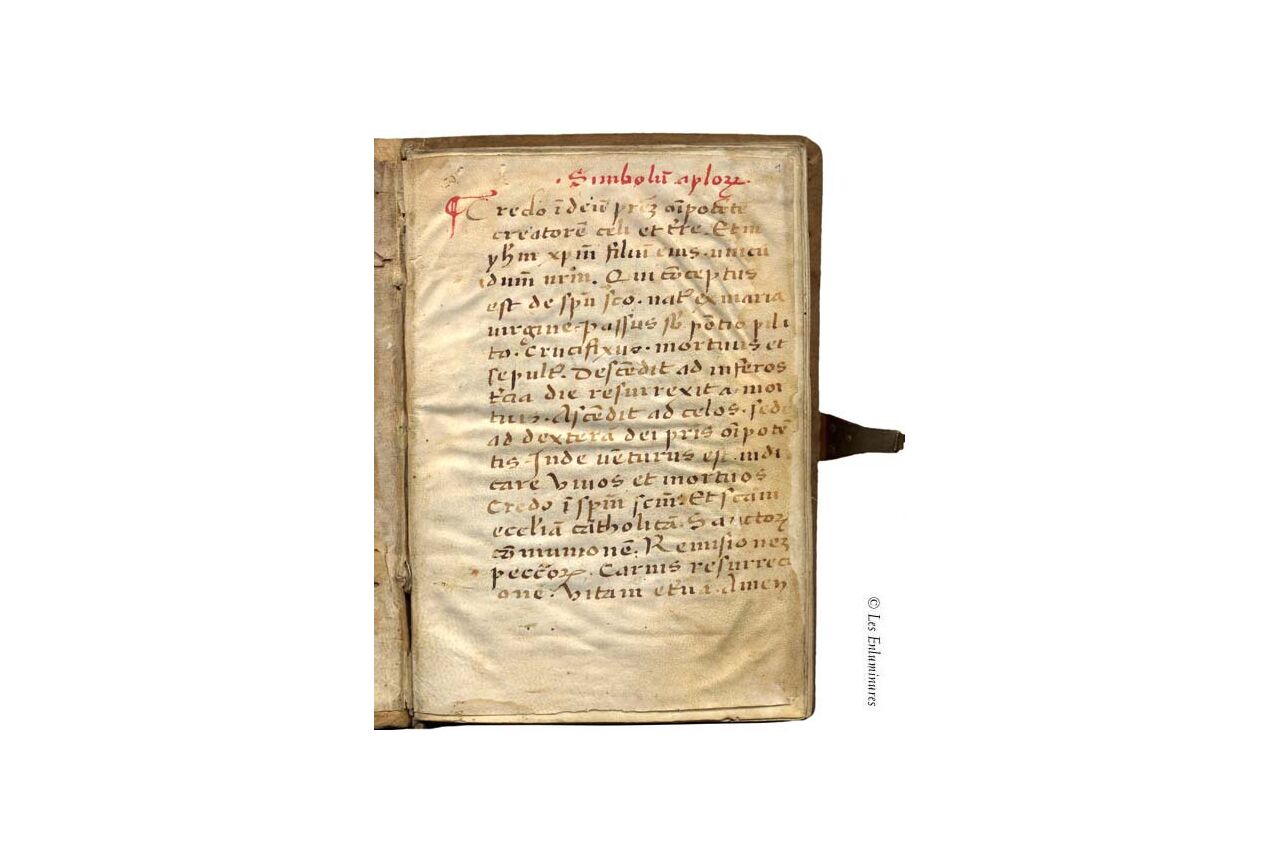 · Simbolū aploꝝ ·
Credo ī deū prēʒ oīpotētē
creatorē celi et t̄re. Et in
yh̄m xpm̄ filiū eius unicū
dum̄ nrm̄. Qui cōceptus
est de spū sc̄o. nat᷒ ex maria
virgine. passus sb̄ pōtio pila
to. Crucifixus. mortuus et
sepult᷒. Descēdit ad inferos
t̄cia die resurrexit a mor
tuis. Ascēdit ad celos. sede
ad dexterā dei pr̄is oīpotē
tis. Inde vēturus est iudi
care vivos et mortuos
Credo ī spm̄ scm̄. Et scām
eccl̄iā catholicā. Sanctoꝝ
cōmunionē. Remisionez
peccōꝝ. Carnis resurrec
one. Vitam et̄nā. Amen
© Les Enluminures